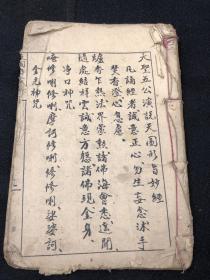 大聖五公演說天圖形旨妙經
凡誦經者誠意正心勿生妄念淨手
焚香澄心息慮
爐香乍熱法界蒙熏諸佛海會悉遙聞
隨處結祥雲誠意方慇諸佛現全身
淨口神咒
唵修唎修唎摩訶修唎修修唎娑婆訶
金光神咒